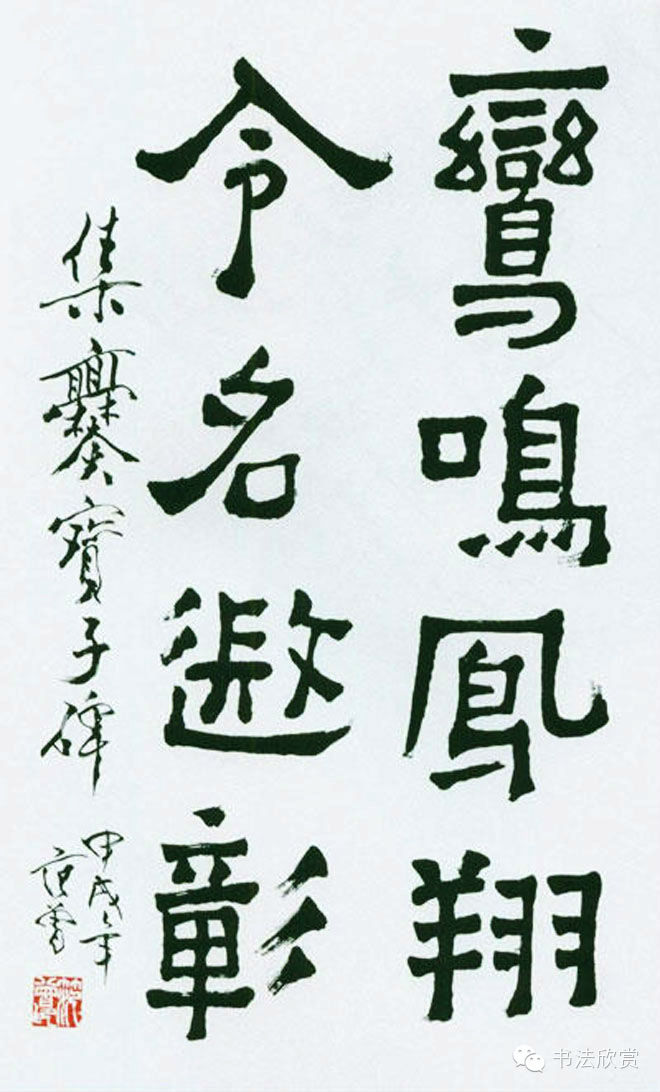 鸞鳴鳳翔
令名遐彰
集爨寶子碑
甲戌年
范曾
书法欣赏